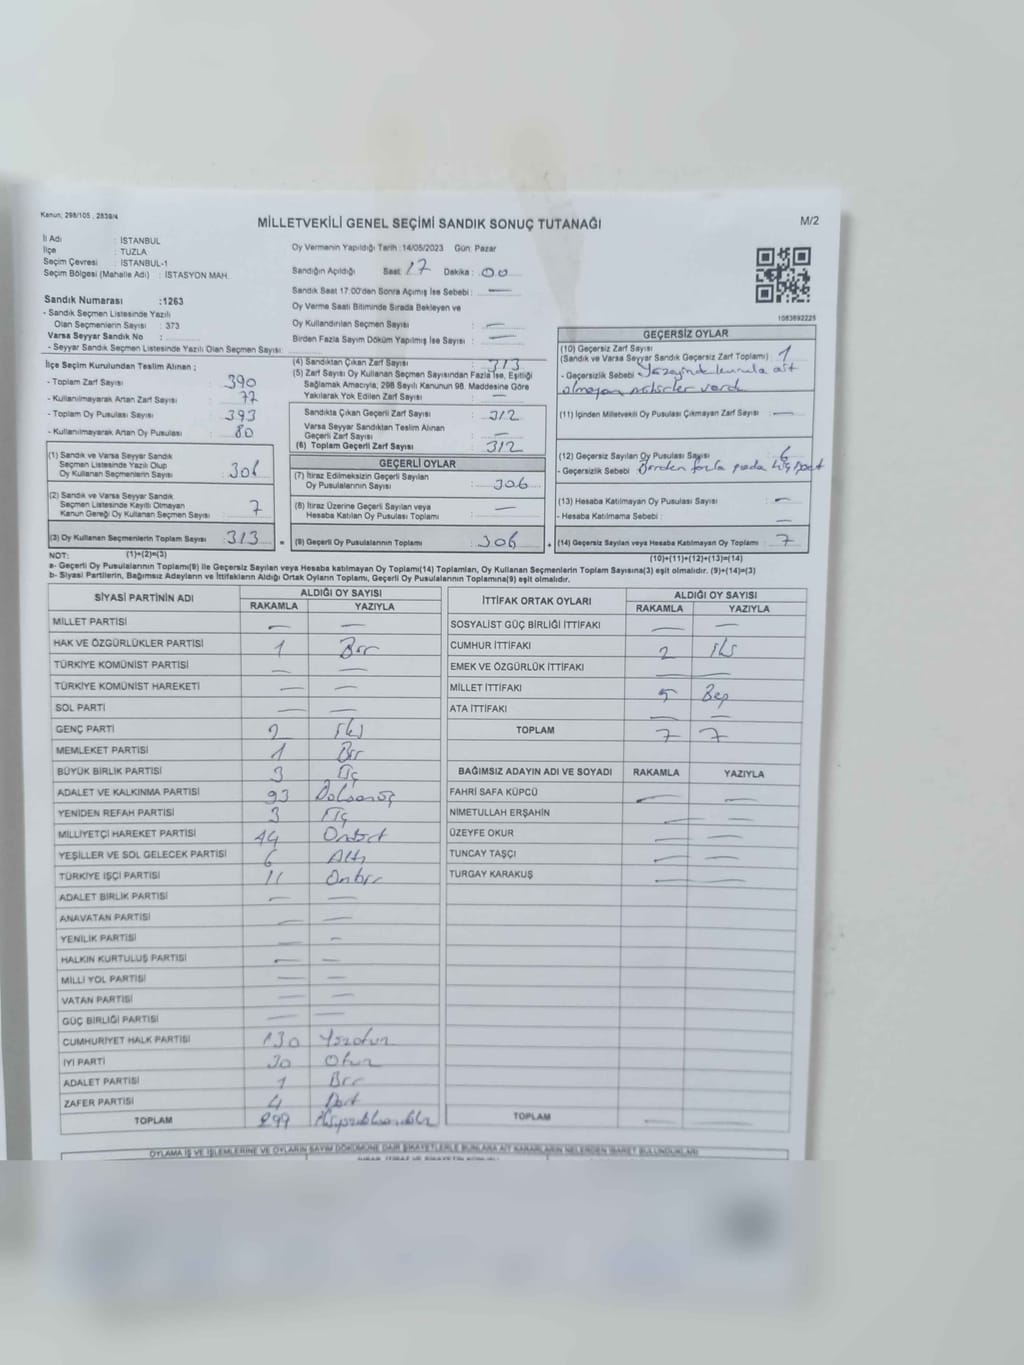 Kanun, 298/105 , 2839/4
MİLLETVEKİLİ GENEL SEÇİMİ SANDIK SONUÇ TUTANAĞI
M/2
İl Adı : İSTANBUL
İlçe : TUZLA
Seçim Çevresi : İSTANBUL-1
Seçim Bölgesi (Mahalle Adı) : İSTASYON MAH.
Sandık Numarası :1263
- Sandık Seçmen Listesinde Yazılı
Olan Seçmenlerin Sayısı : 373
Varsa Seyyar Sandık No :
- Seyyar Sandık Seçmen Listesinde Yazılı Olan Seçmen Sayısı:
Oy Vermenin Yapıldığı Tarih :14/05/2023 Gün: Pazar
Sandığın Açıldığı Saat: 17 Dakika : 00
Sandık Saat 17:00'den Sonra Açımış İse Sebebi : —
Oy Verme Saati Bitiminde Sırada Bekleyen ve
Oy Kullandırılan Seçmen Sayısı : —
Birden Fazla Sayım Döküm Yapılmış İse Sayısı : —
1083692225
İlçe Seçim Kurulundan Teslim Alınan ;
- Toplam Zarf Sayısı : 390
- Kullanılmayarak Artan Zarf Sayısı : 77
- Toplam Oy Pusulası Sayısı : 393
- Kullanılmayarak Artan Oy Pusulası : 80
(1) Sandık ve Varsa Seyyar Sandık
Seçmen Listesinde Yazılı Olup
Oy Kullanan Seçmenlerin Sayısı : 306
(2) Sandık ve Varsa Seyyar Sandık
Seçmen Listesinde Kayıtlı Olmayan
Kanun Gereği Oy Kullanan Seçmen Sayısı : 7
(3) Oy Kullanan Seçmenlerin Toplam Sayısı : 313
(1)+(2)=(3)
(4) Sandıktan Çıkan Zarf Sayısı : 313
(5) Zarf Sayısı Oy Kullanan Seçmen Sayısından Fazla İse, Eşitliği
Sağlamak Amacıyla; 298 Sayılı Kanunun 98. Maddesine Göre
Yakılarak Yok Edilen Zarf Sayısı : —
Sandıkta Çıkan Geçerli Zarf Sayısı : 312
Varsa Seyyar Sandıktan Teslim Alınan
Geçerli Zarf Sayısı : —
(6) Toplam Geçerli Zarf Sayısı : 312
GEÇERLİ OYLAR
(7) İtiraz Edilmeksizin Geçerli Sayılan
Oy Pusulalarının Sayısı : 306
(8) İtiraz Üzerine Geçerli Sayılan veya
Hesaba Katılan Oy Pusulası Toplamı : —
= (9) Geçerli Oy Pusulalarının Toplamı : 306
GEÇERSİZ OYLAR
(10) Geçersiz Zarf Sayısı
(Sandık ve Varsa Seyyar Sandık Geçersiz Zarf Toplamı) : 1
- Geçersiz Sebebi : ait
olmayan vardı
(11) İçinden Milletvekili Oy Pusulası Çıkmayan Zarf Sayısı : —
(12) Geçersiz Sayılan Oy Pusulası Sayısı : 6
- Geçersizlik Sebebi : Birden fazla
(13) Hesaba Katılmayan Oy Pusulası Sayısı : —
- Hesaba Katılmama Sebebi : —
+ (14) Geçersiz Sayılan veya Hesaba Katılmayan Oy Toplamı : 7
(10)+(11)+(12)+(13)=(14)
NOT:
a- Geçerli Oy Pusulalarının Toplamı(9) ile Geçersiz Sayılan veya Hesaba katılmayan Oy Toplamı(14) Toplamları, Oy Kullanan Seçmenlerin Toplam Sayısına(3) eşit olmalıdır. (9)+(14)=(3)
b- Siyasi Partilerin, Bağımsız Adayların ve İttifakların Aldığı Ortak Oyların Toplamı, Geçerli Oy Pusulalarının Toplamına(9) eşit olmalıdır.
SİYASİ PARTİNİN ADI ALDIĞI OY SAYISI
RAKAMLA YAZIYLA
MİLLET PARTİSİ — —
HAK VE ÖZGÜRLÜKLER PARTİSİ 1 Bir
TÜRKİYE KOMÜNİST PARTİSİ — —
TÜRKİYE KOMÜNİST HAREKETİ — —
SOL PARTİ — —
GENÇ PARTİ 2 İki
MEMLEKET PARTİSİ 1 Bir
BÜYÜK BİRLİK PARTİSİ 3 Üç
ADALET VE KALKINMA PARTİSİ 93 Doksanüç
YENİDEN REFAH PARTİSİ 3 Üç
MİLLİYETÇİ HAREKET PARTİSİ 14 Ondört
YEŞİLLER VE SOL GELECEK PARTİSİ 6 Altı
TÜRKİYE İŞÇİ PARTİSİ 11 Onbir
ADALET BİRLİK PARTİSİ — —
ANAVATAN PARTİSİ — —
YENİLİK PARTİSİ — —
HALKIN KURTULUŞ PARTİSİ — —
MİLLİ YOL PARTİSİ — —
VATAN PARTİSİ — —
GÜÇ BİRLİĞİ PARTİSİ — —
CUMHURİYET HALK PARTİSİ 130 Yüzotuz
İYİ PARTİ 30 Otuz
ADALET PARTİSİ 1 Bir
ZAFER PARTİSİ 4 Dört
TOPLAM 299 İkiyüzdoksandokuz
İTTİFAK ORTAK OYLARI ALDIĞI OY SAYISI
RAKAMLA YAZIYLA
SOSYALİST GÜÇ BİRLİĞİ İTTİFAKI — —
CUMHUR İTTİFAKI 2 İki
EMEK VE ÖZGÜRLÜK İTTİFAKI — —
MİLLET İTTİFAKI 5 Beş
ATA İTTİFAKI — —
TOPLAM 7 7
BAĞIMSIZ ADAYIN ADI VE SOYADI RAKAMLA YAZIYLA
FAHRİ SAFA KÜPCÜ — —
NİMETULLAH ERŞAHİN — —
ÜZEYFE OKUR — —
TUNCAY TAŞÇI — —
TURGAY KARAKUŞ — —
TOPLAM — —
OYLAMA İŞ VE İŞLEMLERİNE VE OYLARIN SAYIM DÖKÜMÜNE DAİR ŞİKAYETLERLE BUNLARA AİT KARARLARIN NELERDEN İBARET BULUNDUKLARI